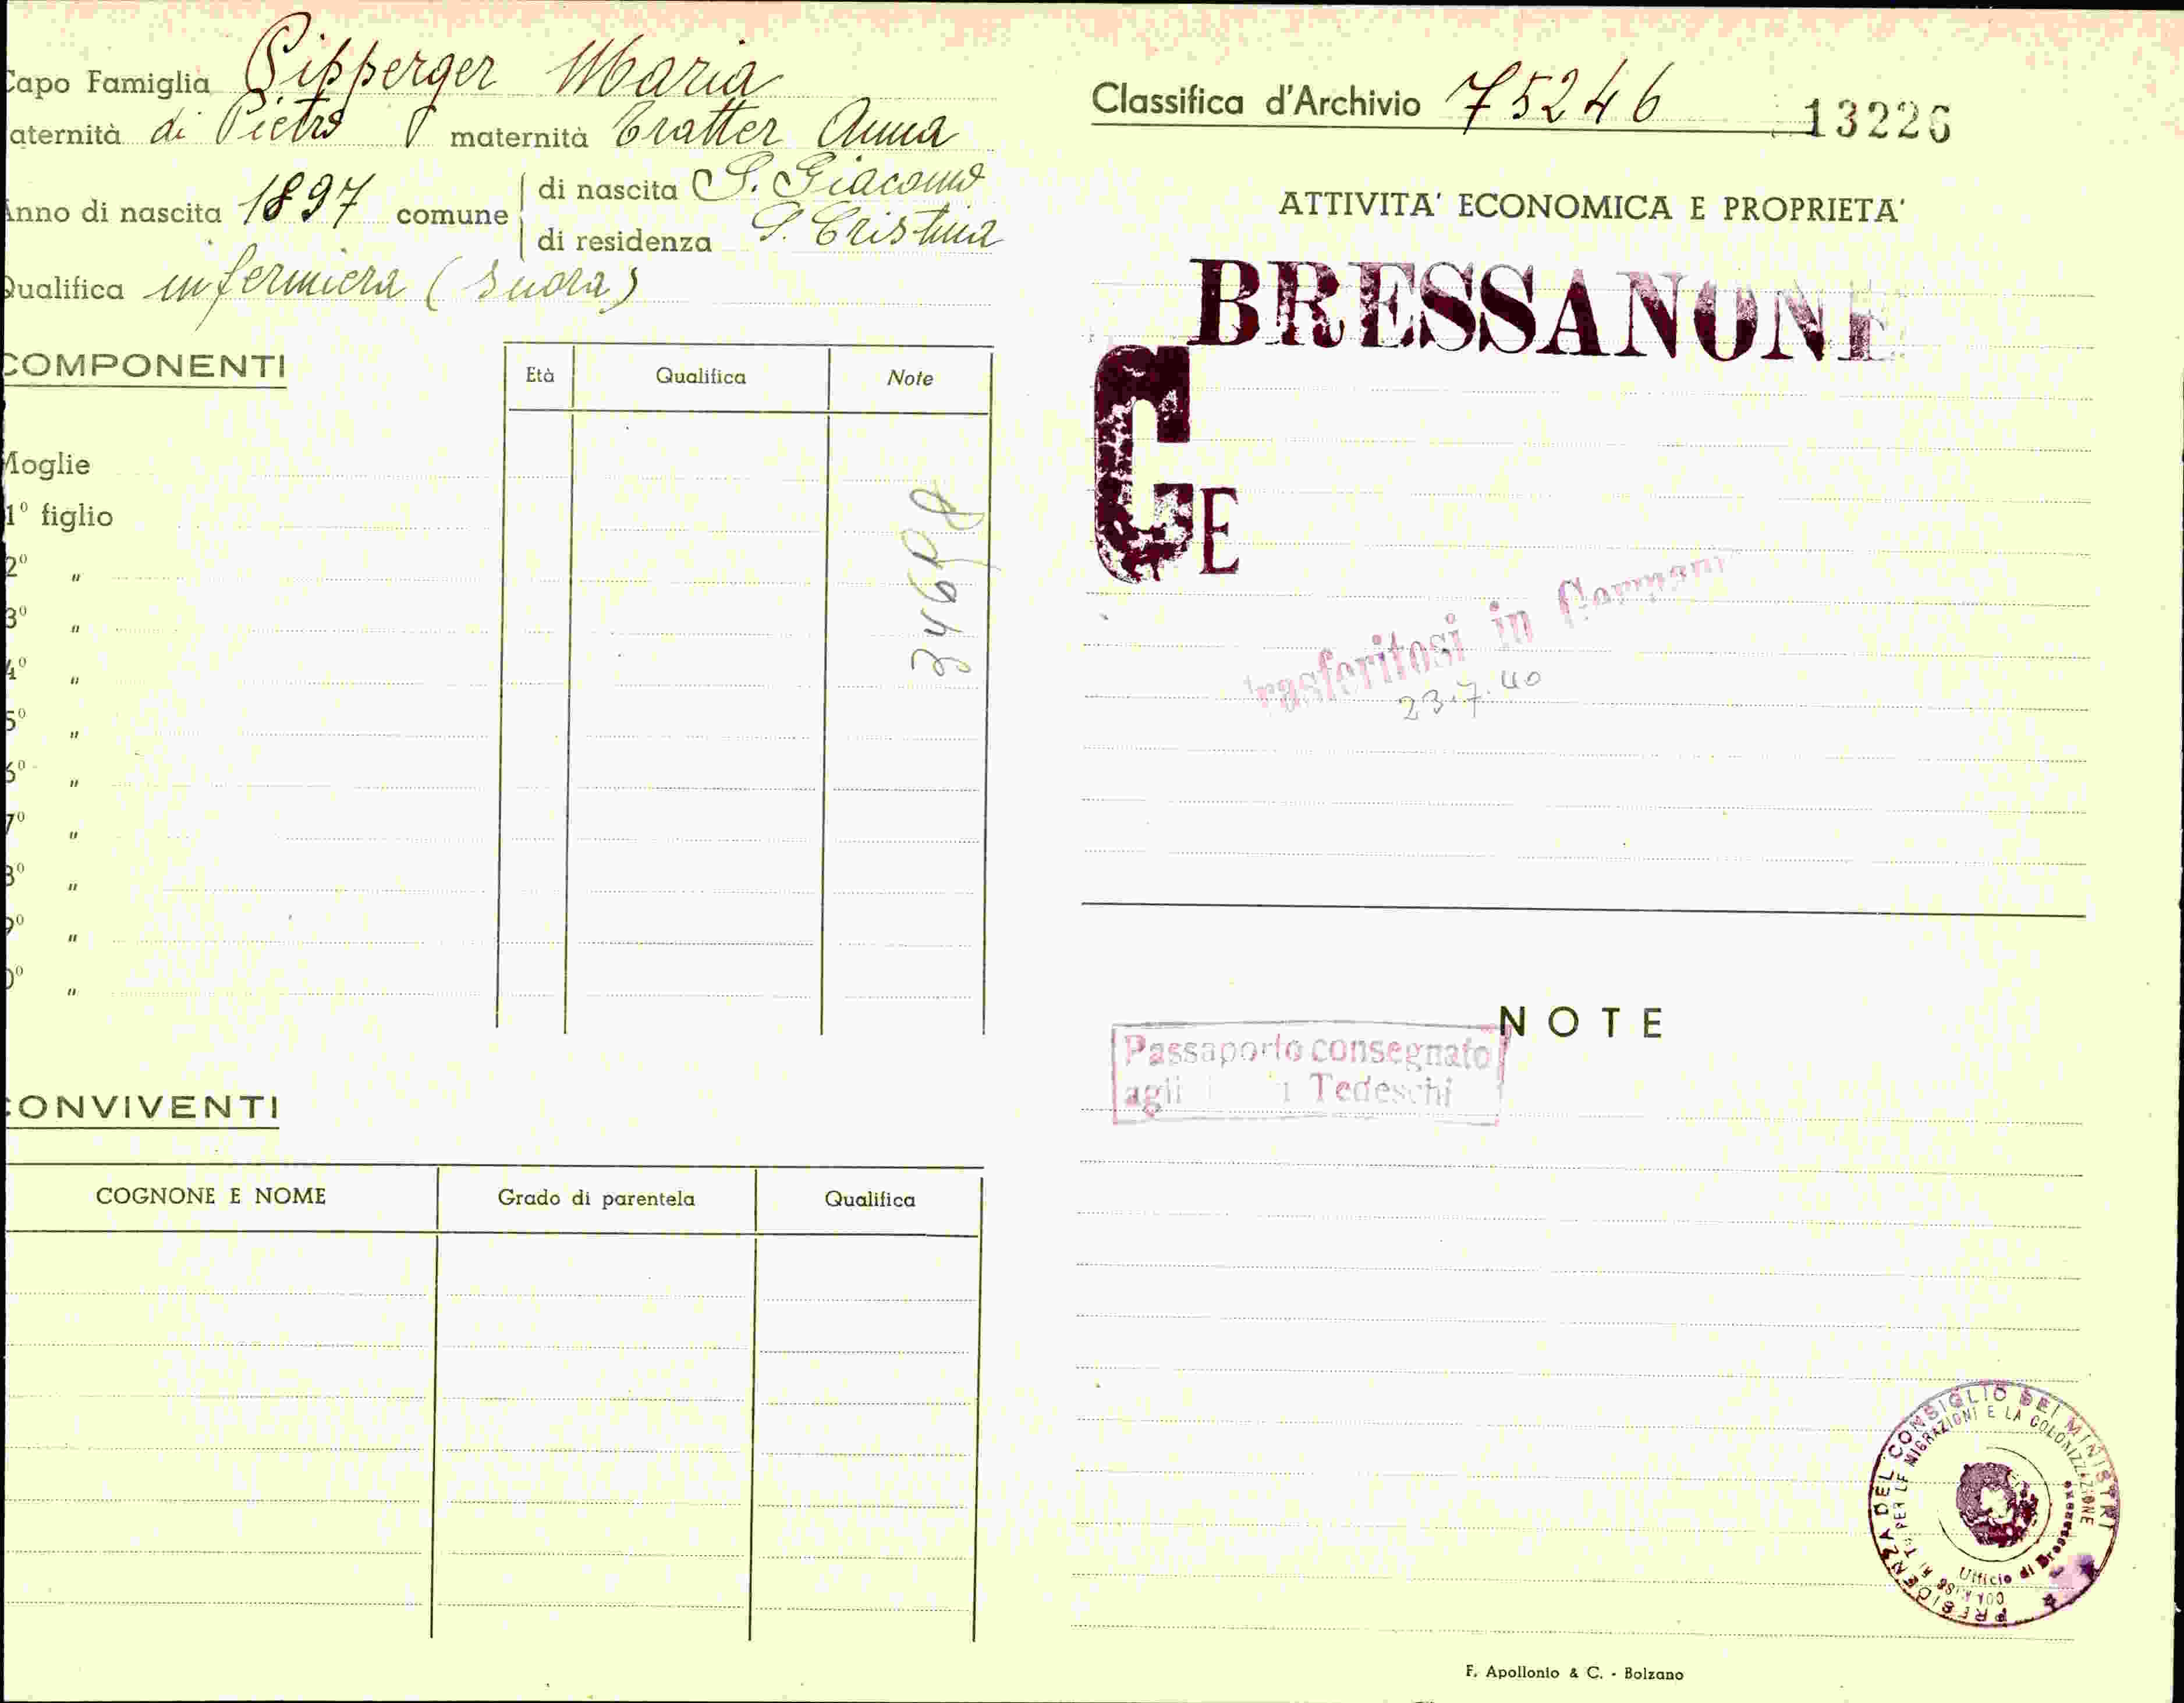 Capo Famiglia Pipperger Maria
aternità di Pietro maternità Tratter Anna
Anno di nascita 1897 comune di nascita S. Giacomo
di residenza S. Cristina
Qualifica infermiera (suora)
COMPONENTI
Età Qualifica Note
Moglie
1° figlio
2° "
3° "
4° "
5° "
6° "
7° "
8° "
9° "
0° "
34698
CONVIVENTI
COGNONE E NOME Grado di parentela Qualifica
Classifica d'Archivio 75246 13226
ATTIVITA' ECONOMICA E PROPRIETA'
BRESSANONE
G E
trasferitosi in Germani
23.7.40
NOTE
Passaporto consegnato
agli Tedeschi
PRESIDENZA DEL CONSIGLIO DEI MINISTRI
PER LE MIGRAZIONI E LA COLONIZZAZIONE
Ufficio di Bressanone
F. Apollonio & C. - Bolzano